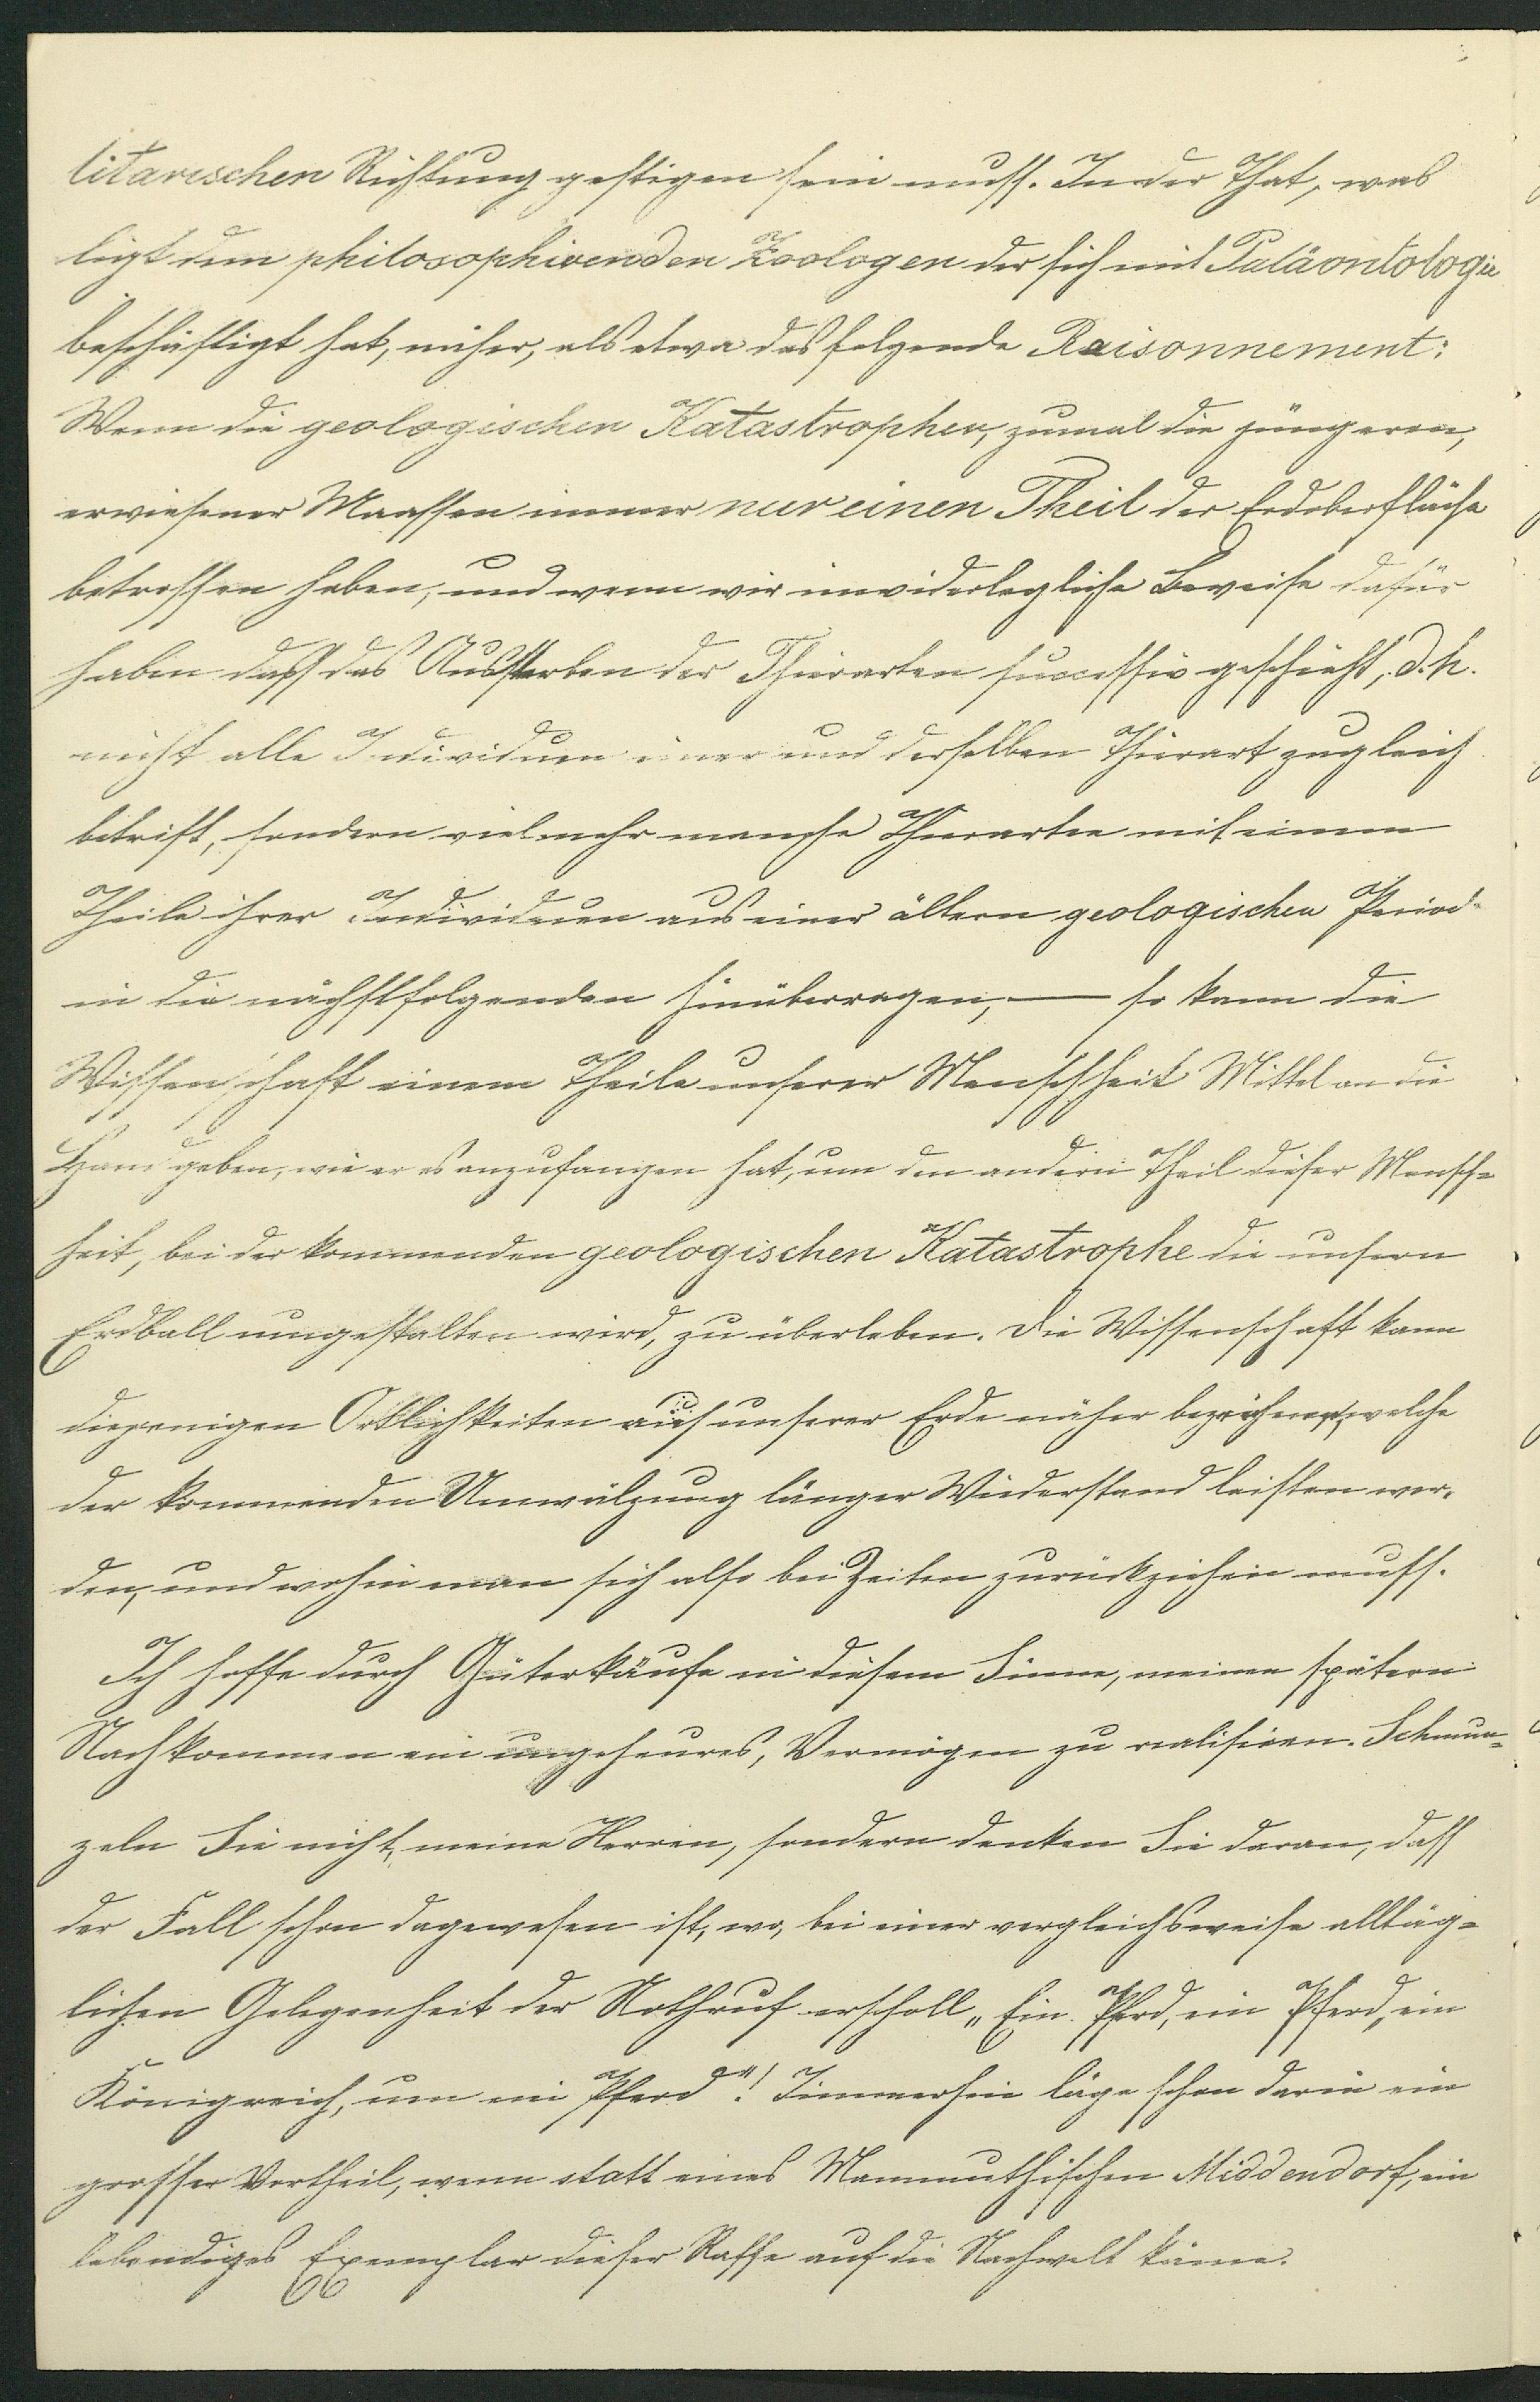 litarischen Richtung gestigen sein muss. In der That, was
ligt dem philosophirenden Zoologen der sich mit Paläontologie
beschäftigt hat, näher, als etwa das folgende Raisonnement:
Wenn die geologischen Katastrophen, zumal die jüngeren,
erwiesener Maassen immer nur einen Theil der Erdoberfläche
betroffen haben, und wenn wir unwiderlegliche Beweise dafür
haben dass das Aussterben der Thierarten successiv geschieht, d. h.
nicht alle Individuen einer und derselben Thierart zugleich
betrift, sondern vielmehr manche Thierarten mit einem
Theile ihrer Individuen aus einer ältern geologischen Period
in die nächstfolgenden hinüberragen, — so kann die
Wissenschaft einem Theile unserer Menschheit Mittel an die
Hand geben, wie er es anzufangen hat, um den andern Theil dieser Mensch=
heit, bei der kommenden geologischen Katastrophe die unsern
Erdball umgestalten wird, zu überleben. Die Wissenschaft kann
diejenigen Örtlichkeiten auf unserer Erde näher bezeichnen, welche
der kommenden Umwälzung länger Wiederstand leisten wer-
den, und wohin man sich also bei Zeiten zurückziehen muss.
Ich hoffe durch Güterkäufe in diesem Sinne, meinen spätern
Nachkommen ein ungeheures, Vermögen zu realisiren. Schmun=
zeln Sie nicht, meine Herren, sondern denken Sie daran, dass
der Fall schon dagewesen ist, wo, bei einer vergleichsweise alltäg=
lichen Gelegenheit der Nothruf erscholl „Ein Pferd, ein Pferd, ein
Königreich, um ein Pferd"! Immerhin läge schon darin ein
grosser Vortheil, wenn statt eines Mammuthischen Middendorf, ein
lebendiges Exemplar dieser Rasse auf die Nachwelt käme.